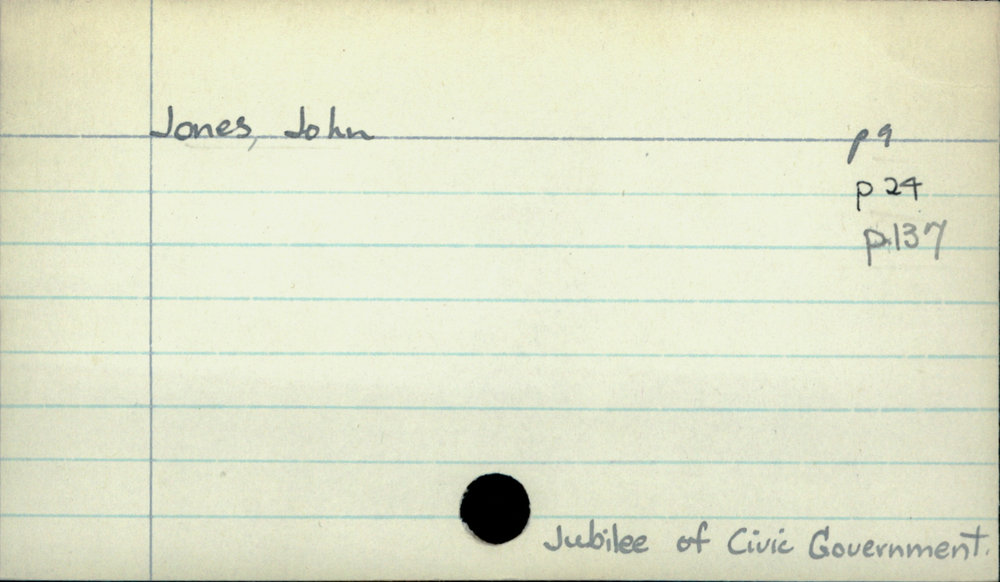 Jones, John p 9
p 24
p.137
Jubilee of Civic Government.